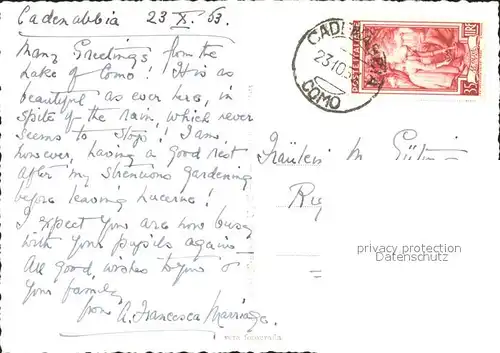 Cadenabbia 23 X. 53.
Many Greetings from the
Lake of Como! It is as
beautiful as ever here, in
spite of the rain, which never
seems to stop! I am
however, having a good rest
after my strenuous gardening
before leaving Lucerne!
I expect you are now busy
with your pupils again—
All good wishes to you &
your family
from A. Francesca
CADENABBIA
COMO
POSTE ITALIANE
L. 35
Fräulein M.
privacy protection
Datenschutz
vera fotografia